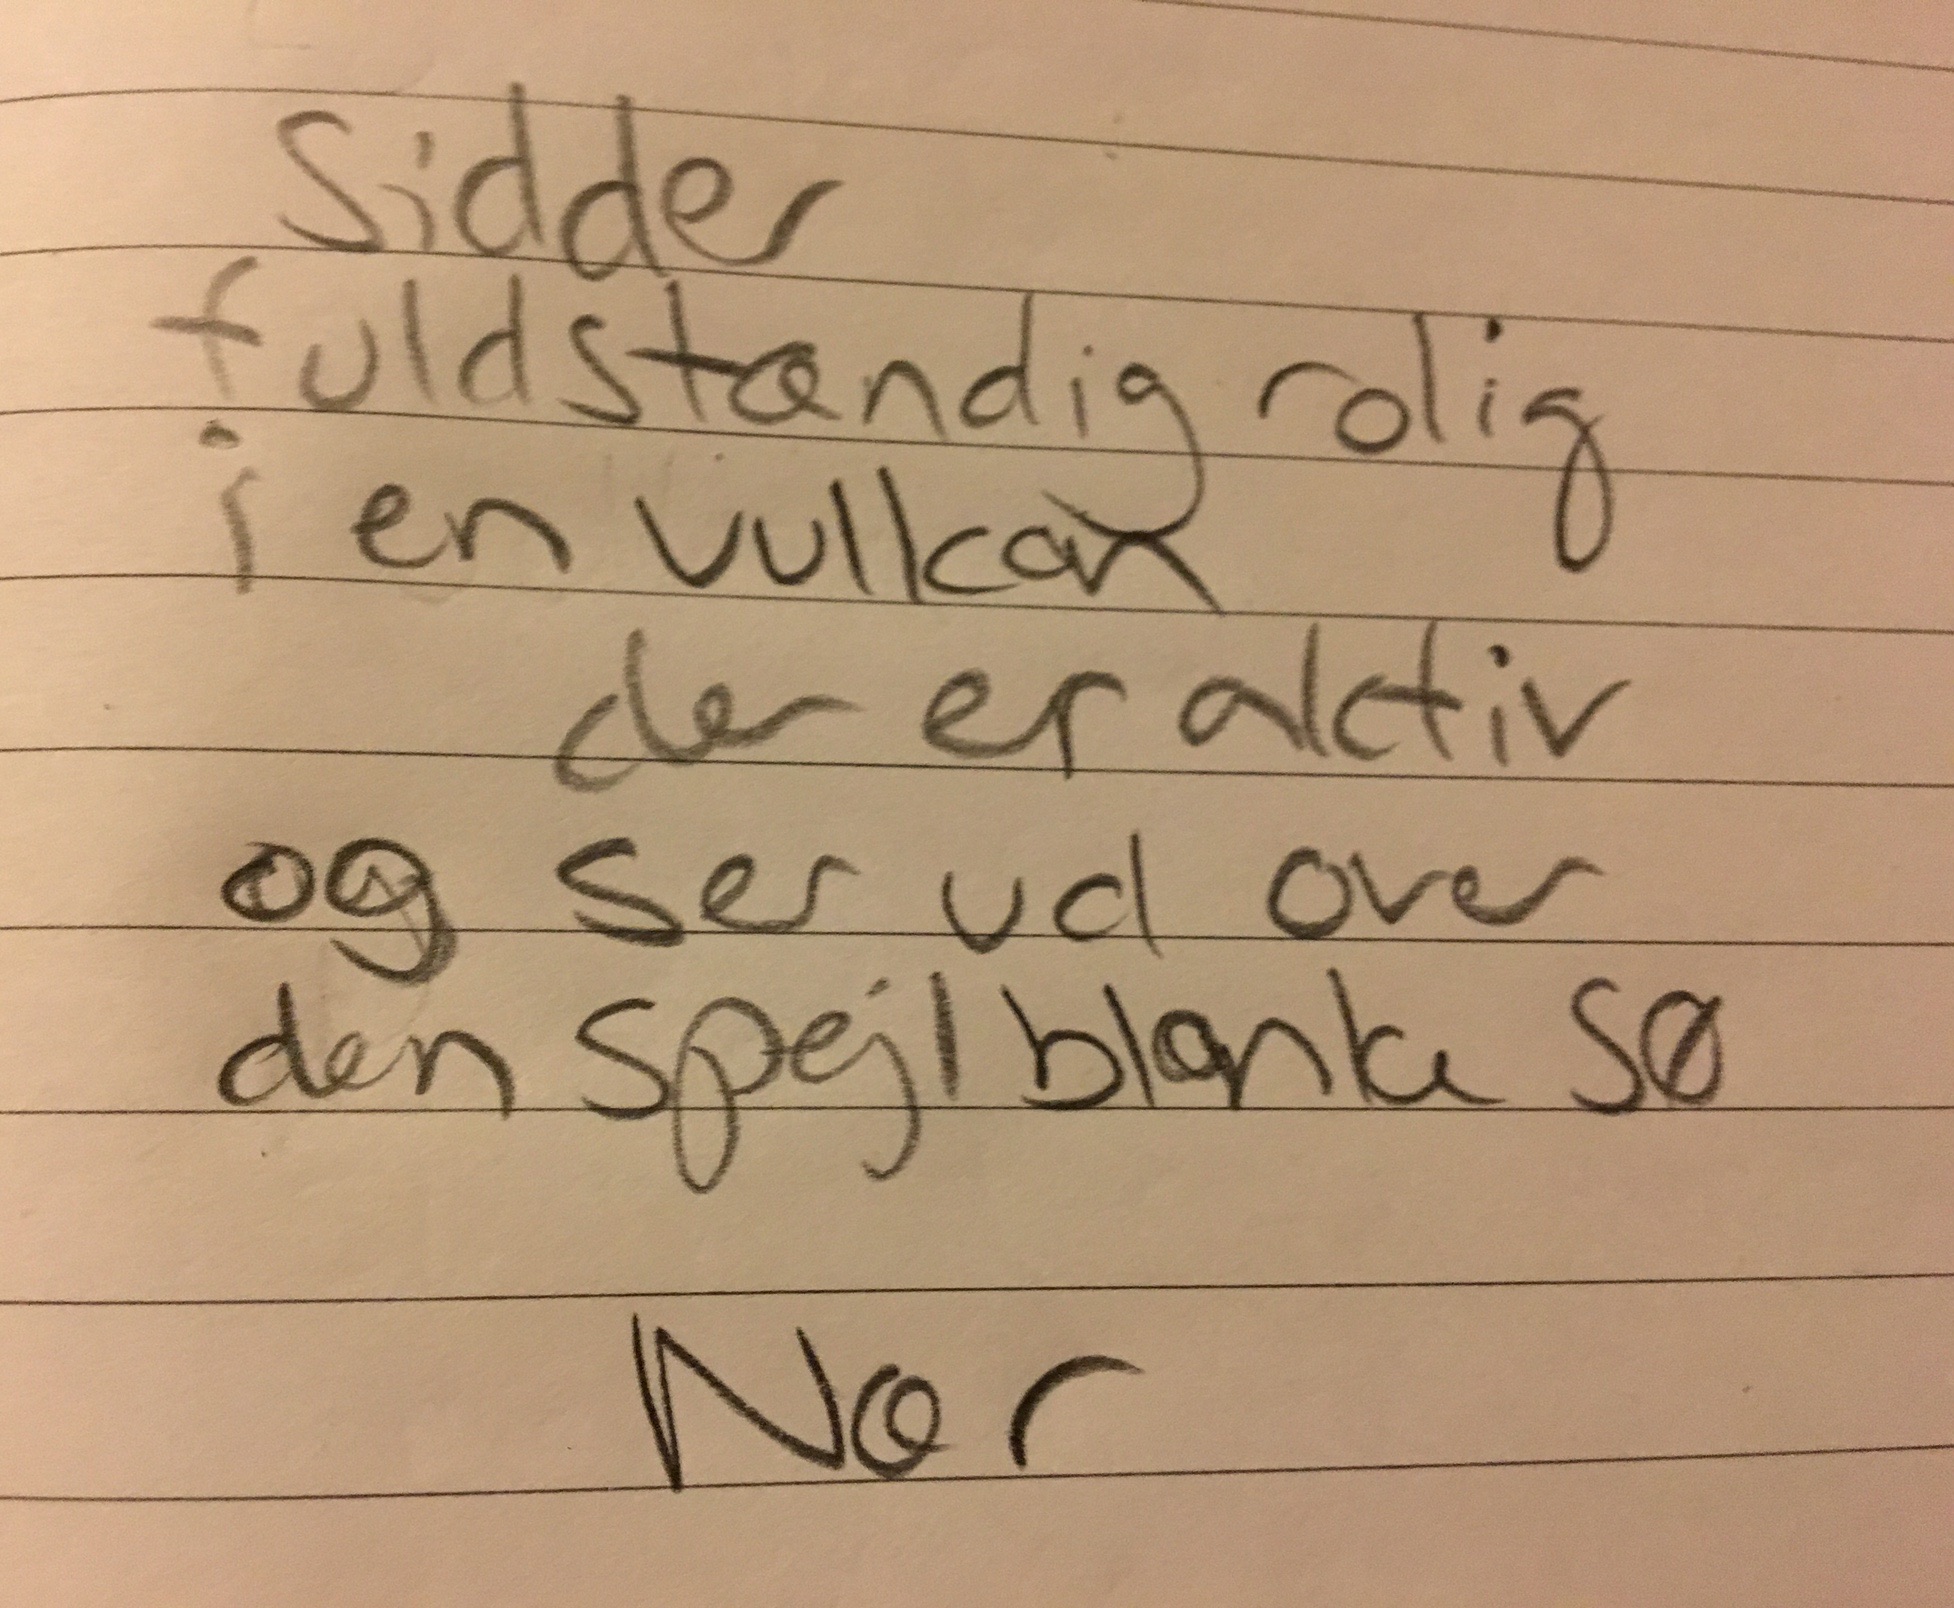 Sidder
fuldstændig rolig
i en vulkan
der er aktiv
og ser ud over
den spejlblanke sø
Nær